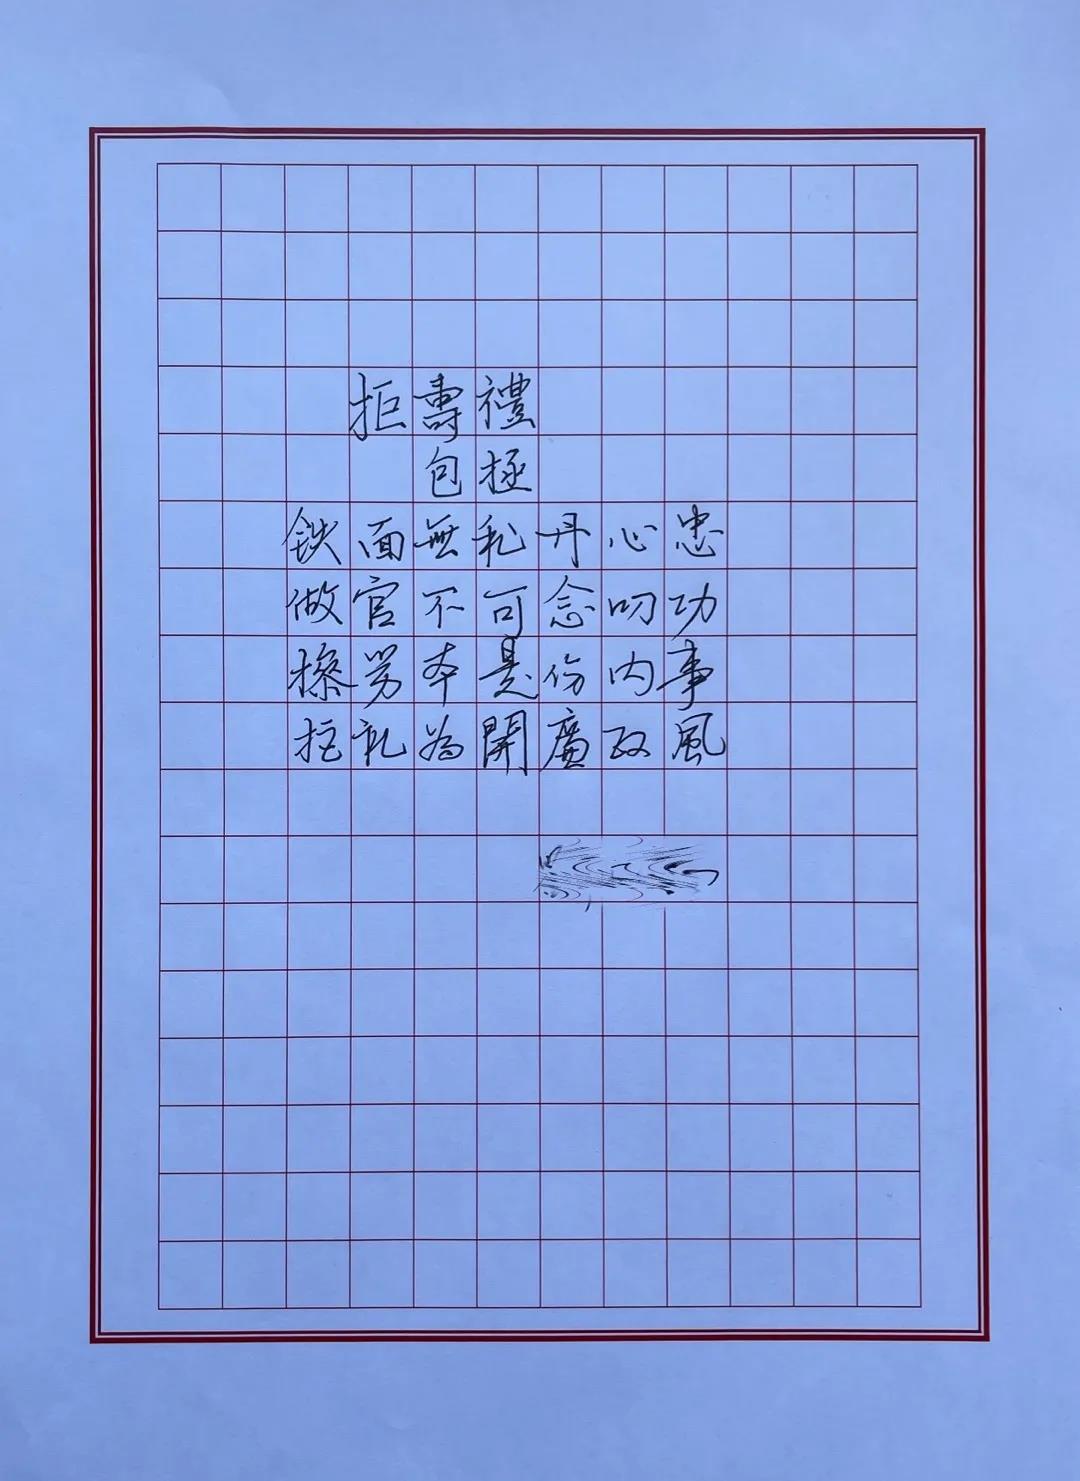 拒壽禮
包拯
鉄面無私丹心忠
做官不可念叨功
操勞本是份内事
拒礼為開廉政風